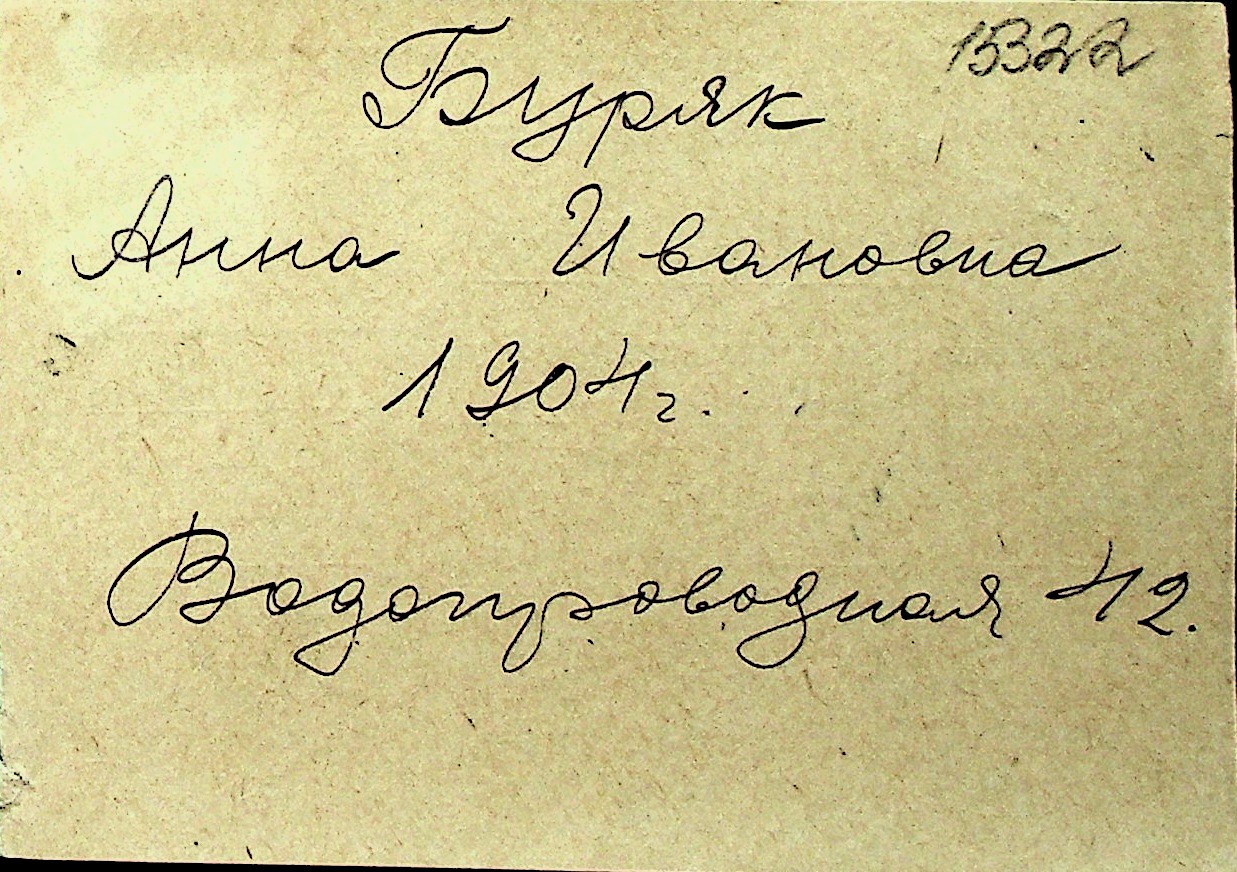 15322
Буряк
Анна Ивановна
1904г.
Водопроводная 42.